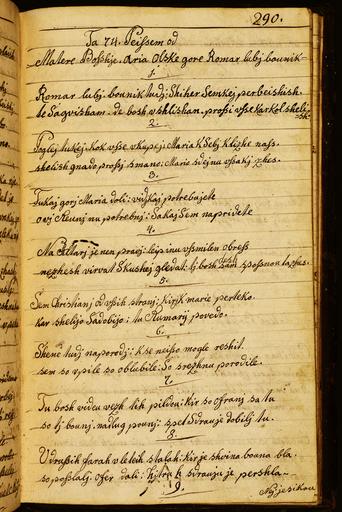 290.
Ta 74. Peissem od
Matere Bosshje. Aria Olske gore Romar lubj bounik
1.
Romar lubj. bounik tudj: Shiher Semkej perbeishish.
de Sagvisham. de bosh vshlishan. prossi vsse karkol shelish.
2.
Poglej tukej: kok vsse vkupej: Maria k Sebj klizhe nass.
shelish gnado prossj smano: Marie sdejnu vssakj zhes.
3.
Tukaj gorj Maria doli: vidjkaj potrebujete
ovj Reunj nu potrebnj: Sakaj Sem napridete
4.
Na Altarj je nen pravj: leipinu vssmilen obress
neghesh virvat Skushaj gledat: tj bosh Sam spossnou ta zhes.
5.
Sem Christianj od vssih stranj: kirjk marie perteko.
kar shelijo Sadobijo: tu Humarij povedo.
6.
Shene tudj naporodj: kse neisso mogle reshit.
sem so vpile so oblubile: So srezhnu porodile.
7.
Tu bosh videu vezh tik pildou: kir so ofranj sa tu
so tj bounj. nadlug pounj: spet Sdrauje dobilj tu.
8.
Vdrussih farah vleteih starah: kir je shvina bouna bla.
so poslalj ofer dali: k sdrauju je pershla
9.
Nyjesikou